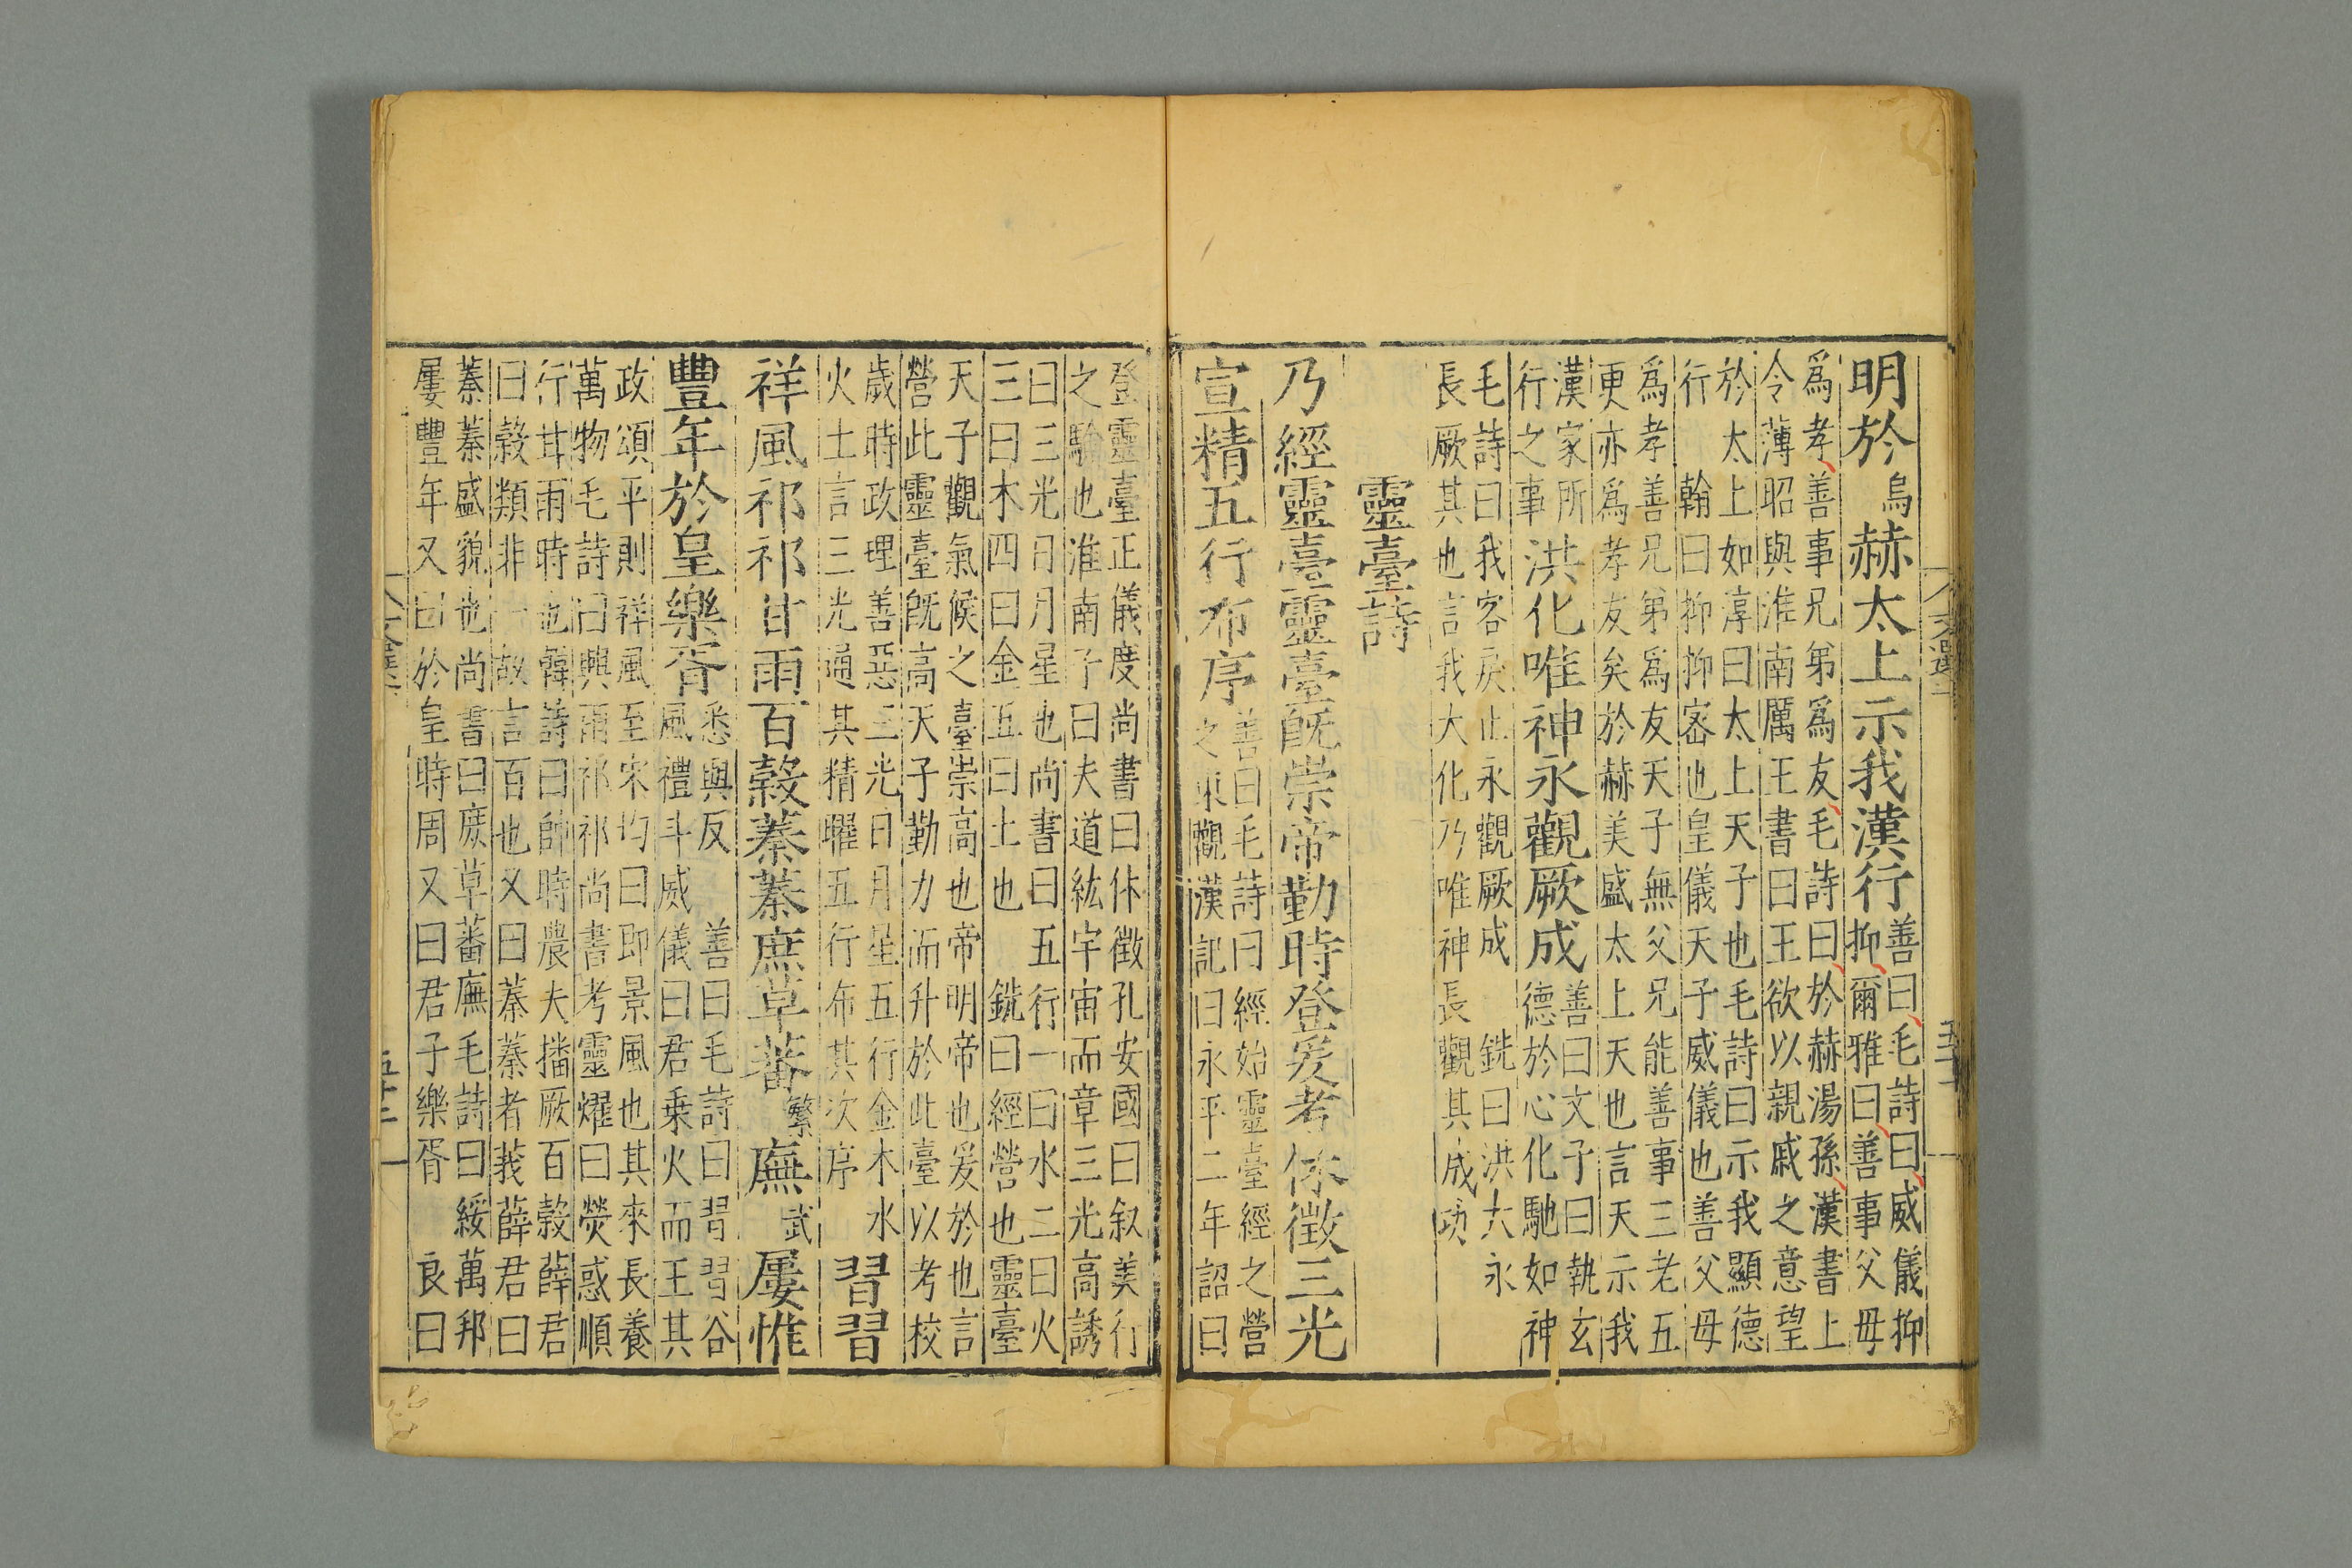 明於烏赫太上示我漢行善曰毛詩曰威儀抑
抑爾雅曰善事父母
爲孝善事兄弟爲友毛詩曰於赫湯孫漢書上
令薄昭與淮南厲王書曰王欲以親戚之意望
於太上如淳曰太上天子也毛詩曰示我顯德
行 翰曰抑抑密也皇儀天子威儀也善父母
爲孝善兄弟爲友天子無父兄能善事三老五
更亦爲孝友矣於赫美盛太上天也言天示我
漢家所
行之事洪化唯神永觀厥成善曰文子曰執玄
德於心化馳如神
毛詩曰我客戾止永觀厥成 銑曰洪大永
長厥其也言我大化乃唯神長觀其成功
靈臺詩
乃經靈臺靈臺旣崇帝勤時登爰考休徵三光
宣精五行布序善曰毛詩曰經始靈臺經之營
之東觀漢記曰永平二年詔曰
登靈臺正儀度尚書曰休徵孔安國曰叙美行
之驗也淮南子曰夫道紘宇宙而章三光高誘
曰三光日月星也尚書曰五行一曰水二曰火
三曰木四曰金五曰土也 銑曰經營也靈臺
天子觀氣候之臺崇高也帝明帝也爰於也言
營此靈臺旣高天子勤力而升於此臺以考校
歲時政理善惡三光日月星五行金木水
火土言三光通其精曜五行布其次序習習
祥風祁祁甘雨百榖蓁蓁庶草蕃繁廡武屢惟
豐年於皇樂胥悉與反 善曰毛詩曰習習谷
風禮斗威儀曰君乗火而王其
政頌平則祥風至宋均曰即景風也其來長養
萬物毛詩曰興雨祁祁尚書考靈燿曰熒惑順
行甘雨時也韓詩曰帥時農夫播厥百榖薛君
曰榖類非一故言百也又曰蓁蓁者莪薛君曰
蓁蓁盛貌也尚書曰庶草蕃廡毛詩曰綏萬邦
屢豐年又曰於皇時周又曰君子樂胥 良曰